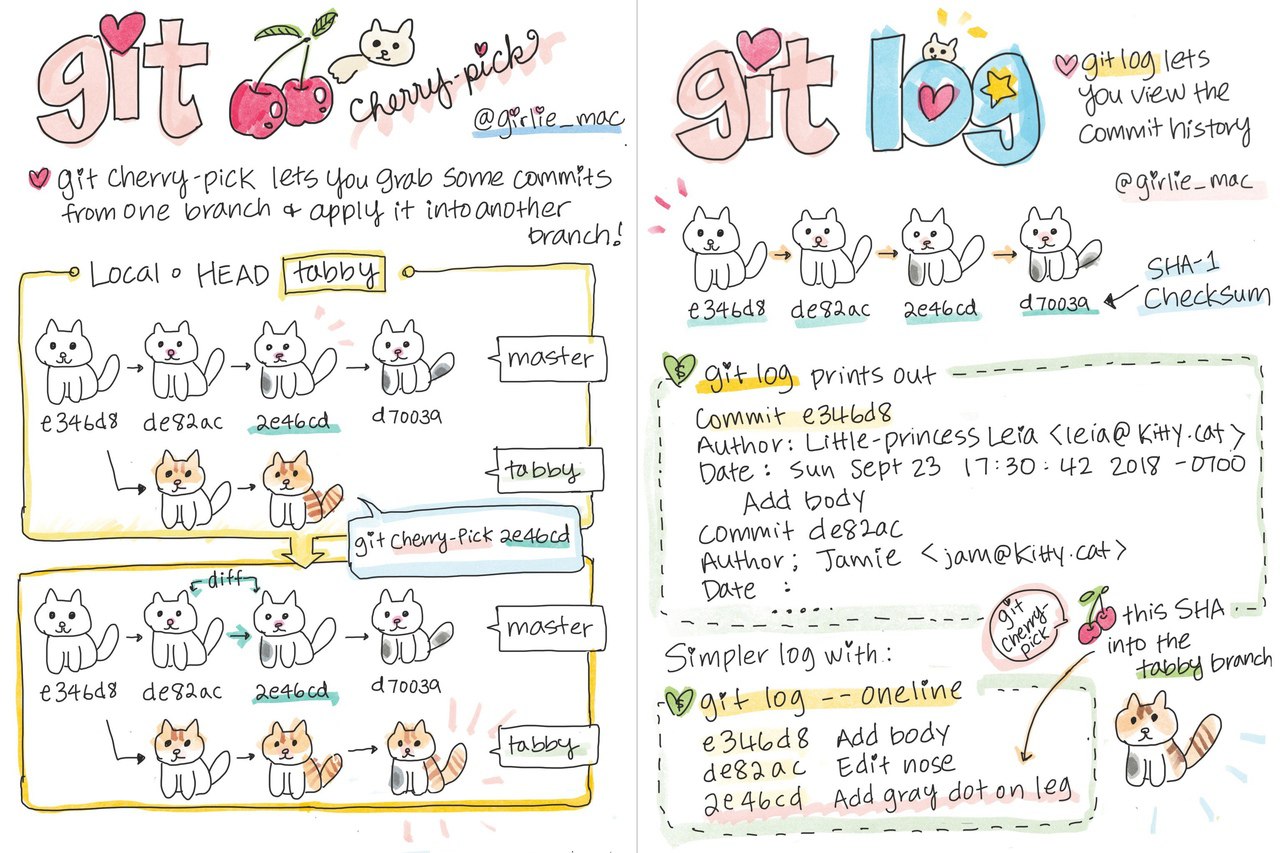 git cherry-pick
@girlie_mac
git cherry-pick lets you grab some commits
from one branch & apply it into another
branch!
Local • HEAD tabby
master
e346d8 de82ac 2e46cd d70039
tabby
git cherry-pick 2e46cd
diff
master
e346d8 de82ac 2e46cd d70039
tabby
git log
git log lets
you view the
commit history
@girlie_mac
e346d8 de82ac 2e46cd d70039
SHA-1
Checksum
$ git log prints out
Commit e346d8
Author: Little-princess Leia <leia@kitty.cat>
Date : Sun Sept 23 17:30:42 2018 -0700
Add body
Commit de82ac
Author; Jamie <jam@kitty.cat>
Date :
.....
git
cherry-
pick
this SHA
into the
tabby branch
Simpler log with:
$ git log --oneline
e346d8 Add body
de82ac Edit nose
2e46cd Add gray dot on leg